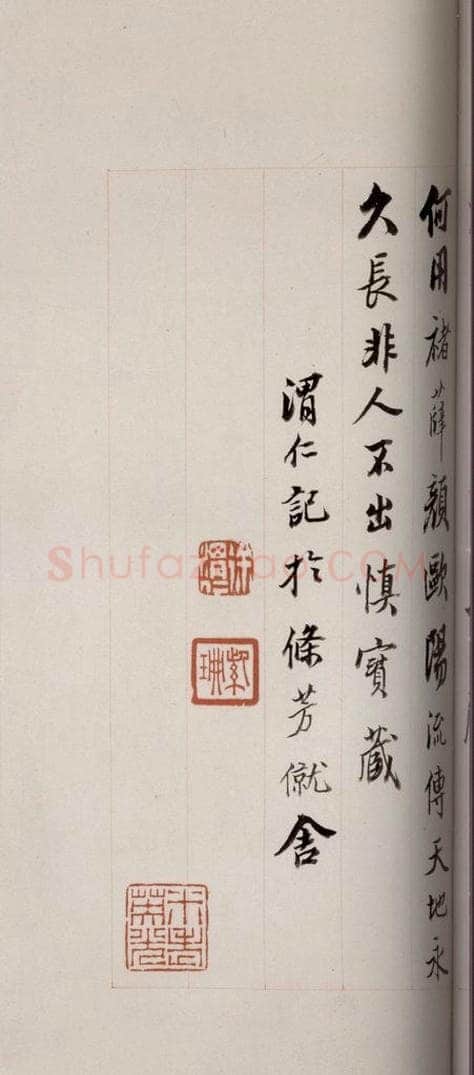 何用褚薛顏歐陽流傳天地永
久長非人不出慎寶藏
渭仁記於條芳僦舍
紫珊
Shufazidao.com